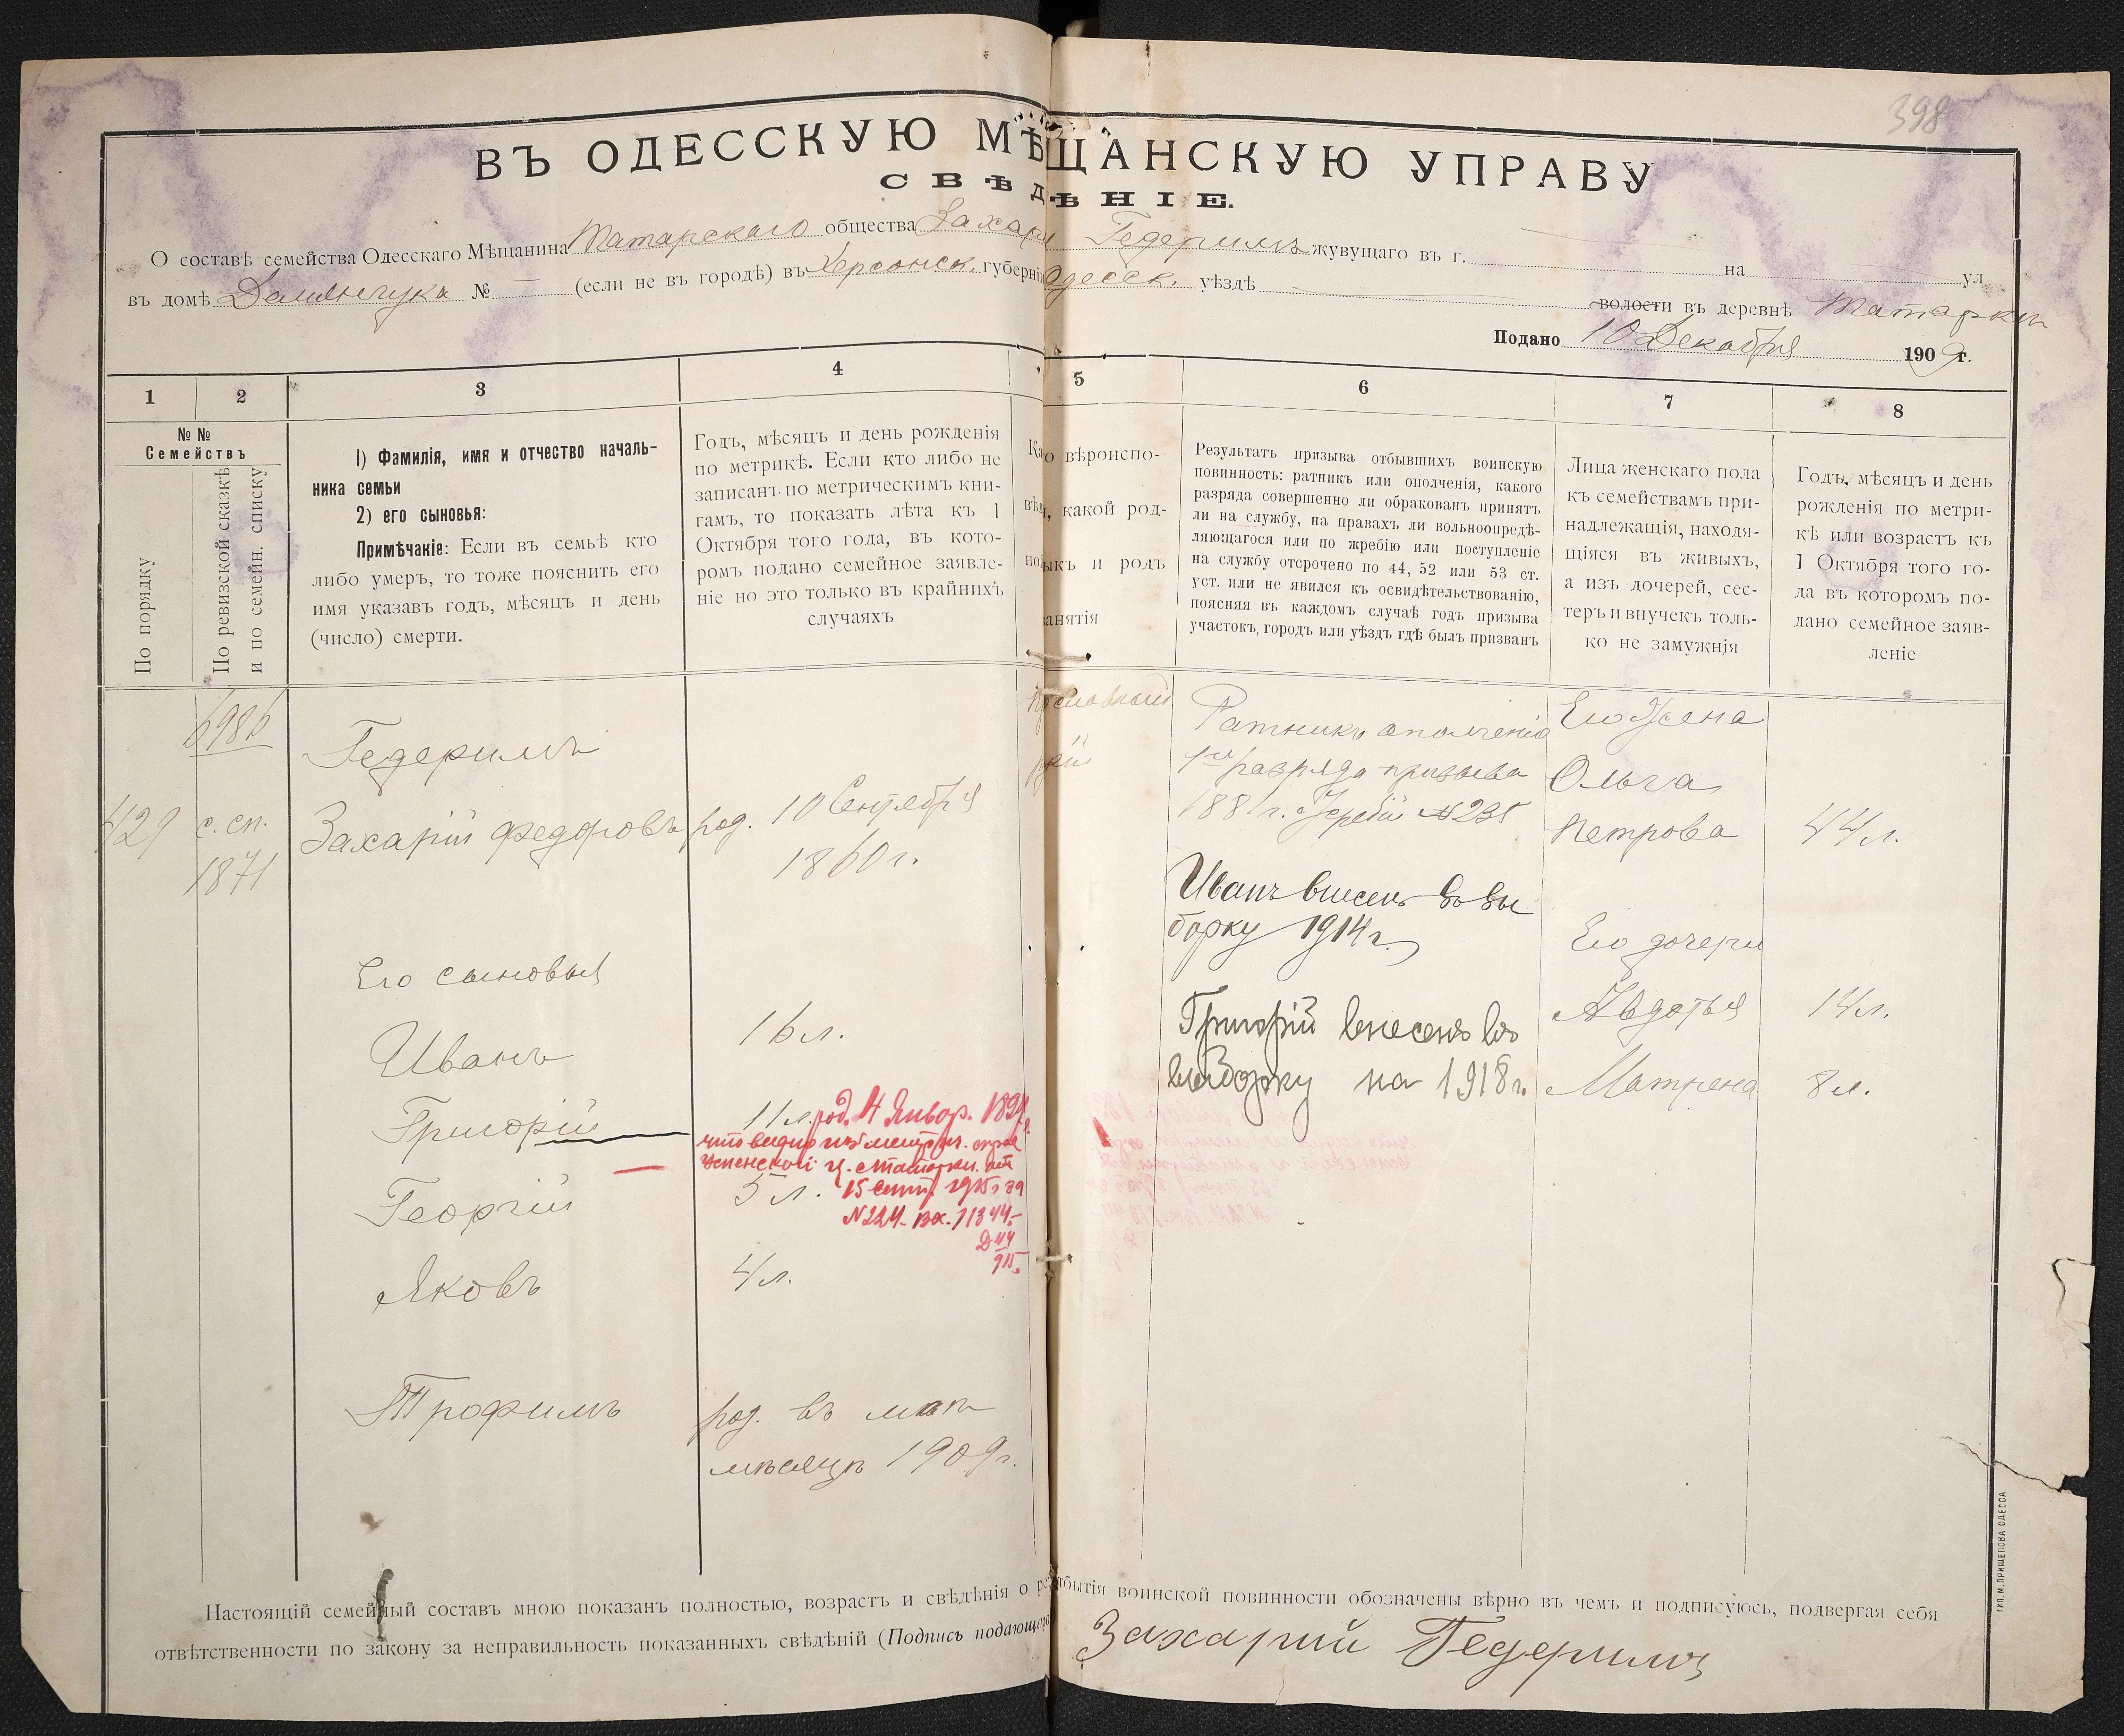 398
ВЪ ОДЕССКУЮ МѢЩАНСКУЮ УПРАВУ
СВѢДѢНІЕ.
О составѣ семейства Одесскаго Мѣщанина Татарскаго общества Захарія Гедеримъ жувущаго въ г. на ул
въ домѣ Демянчука № — (если не въ городѣ) въ Херсонск. губерніи Одесск. уѣздѣ волости въ деревнѣ Татарки
Подано 10 Декабря 1909 г.
1 2 3 4 5 6 7 8
№№
Семействъ
По порядку
По ревизской сказкѣ
и по семейн. списку
1) Фамилія, имя и отчество началь-
ника семьи
2) его сыновья:
Примѣчакіе: Если въ семьѣ кто
либо умеръ, то тоже пояснить его
имя указавъ годъ, мѣсяцъ и день
(число) смерти.
Годъ, мѣсяцъ и день рожденія
по метрикѣ. Если кто либо не
записанъ по метрическимъ кни-
гамъ, то показать лѣта къ 1
Октября того года, въ кото-
ромъ подано семейное заявле-
ніе но это только въ крайнихъ
случаяхъ
вѣроиспо-
какой род-
и родъ
занятія
Результатъ призыва отбывшихъ воинскую
повинность: ратникъ или ополченія, какого
разряда совершенно ли обракованъ принятъ
ли на службу, на правахъ ли вольноопредѣ-
ляющагося или по жребію или поступленіе
на службу отсрочено по 44, 52 или 53 ст.
уст. или не явился къ освидѣтельствованію,
поясняя въ каждомъ случаѣ годъ призыва
участокъ, городъ или уѣздъ гдѣ былъ призванъ
Лица женскаго пола
къ семействамъ при-
надлежащія, находя-
щіяся въ живыхъ,
а изъ дочерей, сес-
теръ и внучекъ толь-
ко не замужнія
Годъ, мѣсяцъ и день
рожденія по метри-
кѣ или возрастъ къ
1 Октября того го-
да въ которомъ по-
дано семейное заяв-
леніе
698б
429 с. сп.
1871
Гедеримъ
Захарій Федоровъ род. 10 Сентября
1860 г.
Его сыновья
Иванъ 16 л.
Григорій 11 л. род. 4 Январ.
что видно изъ метрич.
Успенской ц. с. Татарки
15 Сент. 1915 г. за
№224. Вх. 11344.
Д 44
915
Георгій 5 л.
Яковъ 4 л.
Трофимъ род. въ маѣ
мѣсяцѣ 1909 г.
Ратникъ ополченія
1го разряда призыва
188 г. Жребій №235
Иванъ внесенъ въ вы
борку 1914 г.
Григорій внесенъ въ
выборку на 1918 г.
Его Жена
Ольга
Петрова 44 л.
Его дочери
Авдотья 14 л.
Матрена 8 л.
Настоящій семейный составъ мною показанъ полностью, возрастъ и свѣдѣнія о воинской повинности обозначены вѣрно въ чемъ и подписуюсь, подвергая себя
отвѣтственности по закону за неправильность показанныхъ свѣдѣній (Подпись подающаго
Захарий Гедеримъ
ТИП. М. ПРИЩЕПОВА ОДЕССА